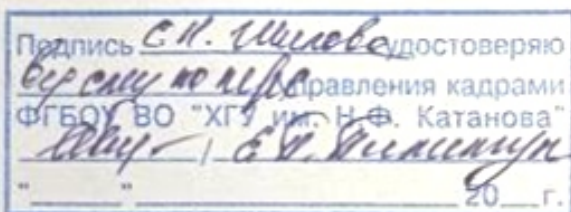 Подпись С.Н. Шилова удостоверяю
вед спец по перс управления кадрами
ФГБОУ ВО "ХГУ им. Н.Ф. Катанова"
"___"________ 20__г.